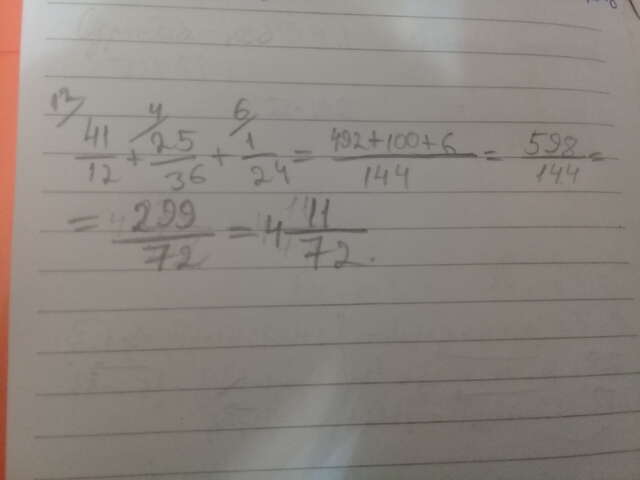 12/ 4/ 6/
41/12 + 25/36 + 1/24 = 492+100+6/144 = 598/144 =
= 299/72 = 4 11/72.